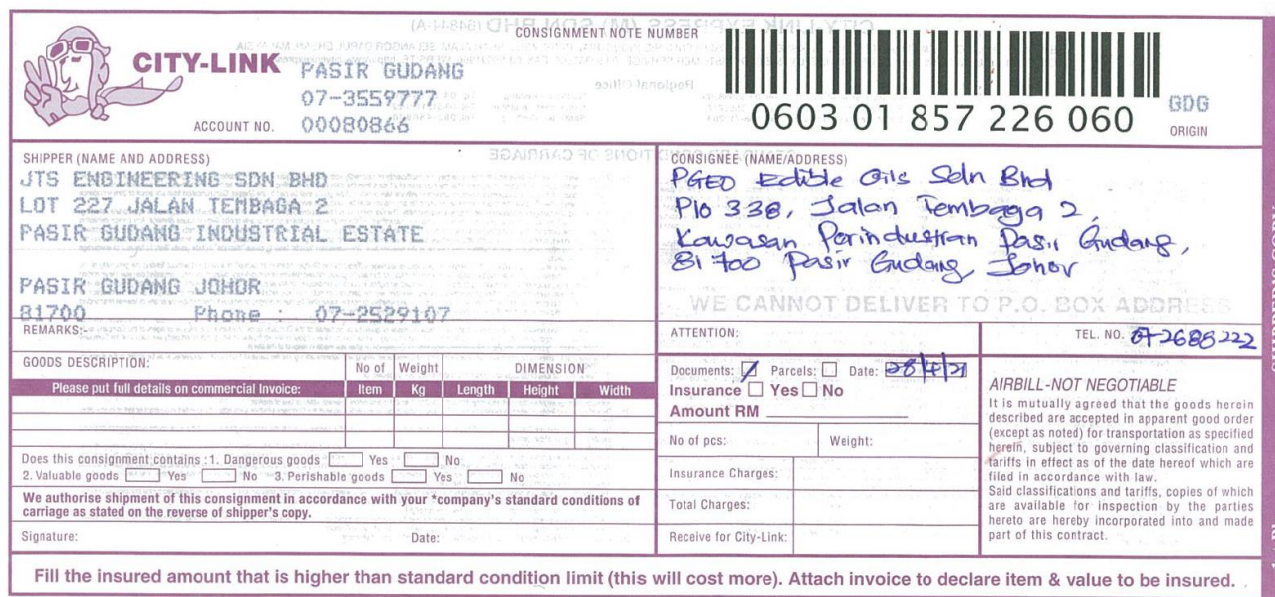 CITY-LINK
PASIR GUDANG
07-3559777
ACCOUNT NO. 00080866
CONSIGNMENT NOTE NUMBER
0603 01 857 226 060
GDG
ORIGIN
SHIPPER (NAME AND ADDRESS)
JTS ENGINEERING SDN BHD
LOT 227 JALAN TEMBAGA 2
PASIR GUDANG INDUSTRIAL ESTATE
PASIR GUDANG JOHOR
81700 Phone : 07-2529107
CONSIGNEE (NAME/ADDRESS)
PGEO Edible Oils Sdn Bhd
Plo 338, Jalan Tembaga 2,
Kawasan Perindustrian Pasir Gudang,
81700 Pasir Gudang, Johor
WE CANNOT DELIVER TO P.O. BOX ADDRESS
REMARKS:
ATTENTION:
TEL. NO. 07-2688222
GOODS DESCRIPTION:
No of Weight DIMENSION
Please put full details on commercial Invoice: Item Kg Length Height Width
Does this consignment contains :1. Dangerous goods Yes No
2. Valuable goods Yes No 3. Perishable goods Yes No
We authorise shipment of this consignment in accordance with your *company's standard conditions of
carriage as stated on the reverse of shipper's copy.
Signature: Date:
Documents: Parcels: Date: 28/4/21
Insurance Yes No
Amount RM
No of pcs: Weight:
Insurance Charges:
Total Charges:
Receive for City-Link:
AIRBILL-NOT NEGOTIABLE
It is mutually agreed that the goods herein
described are accepted in apparent good order
(except as noted) for transportation as specified
herein, subject to governing classification and
tariffs in effect as of the date hereof which are
filed in accordance with law.
Said classifications and tariffs, copies of which
are available for inspection by the parties
hereto are hereby incorporated into and made
part of this contract.
Fill the insured amount that is higher than standard condition limit (this will cost more). Attach invoice to declare item & value to be insured.